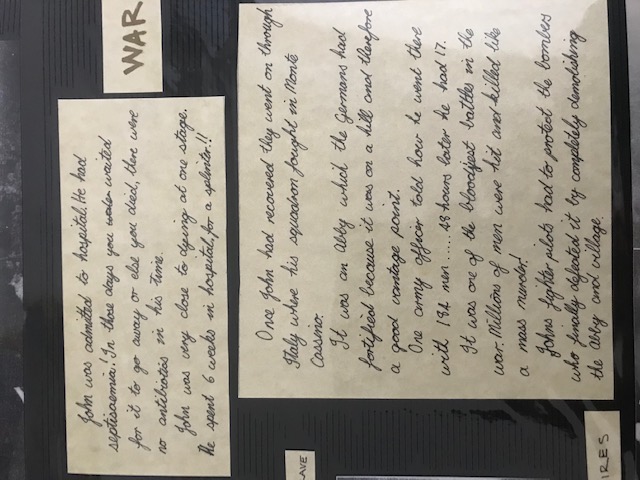 John was admitted to hospital. He had
septisaemia! In those days you waited
for it to go away or else you died, there were
no antibiotics in his time.
John was very close to dying at one stage.
He spent 6 weeks in hospital, for a splinter!!
WAR
Once John had recovered they went on through
Italy where his squadron fought in Monte
Cassino.
It was an Abby which the Germans had
fortified because it was on a hill and therefore
a good vantage point.
One army officer told how he went there
with 184 men ..... 48 hours later he had 17.
It was one of the bloodiest battles in the
war. Millions of men were hit and killed like
a mass murder!
Johns fighter pilots had to protect the bombers
who finally defeated it by completely demolishing
the Abby and village.
LAVE
IRES